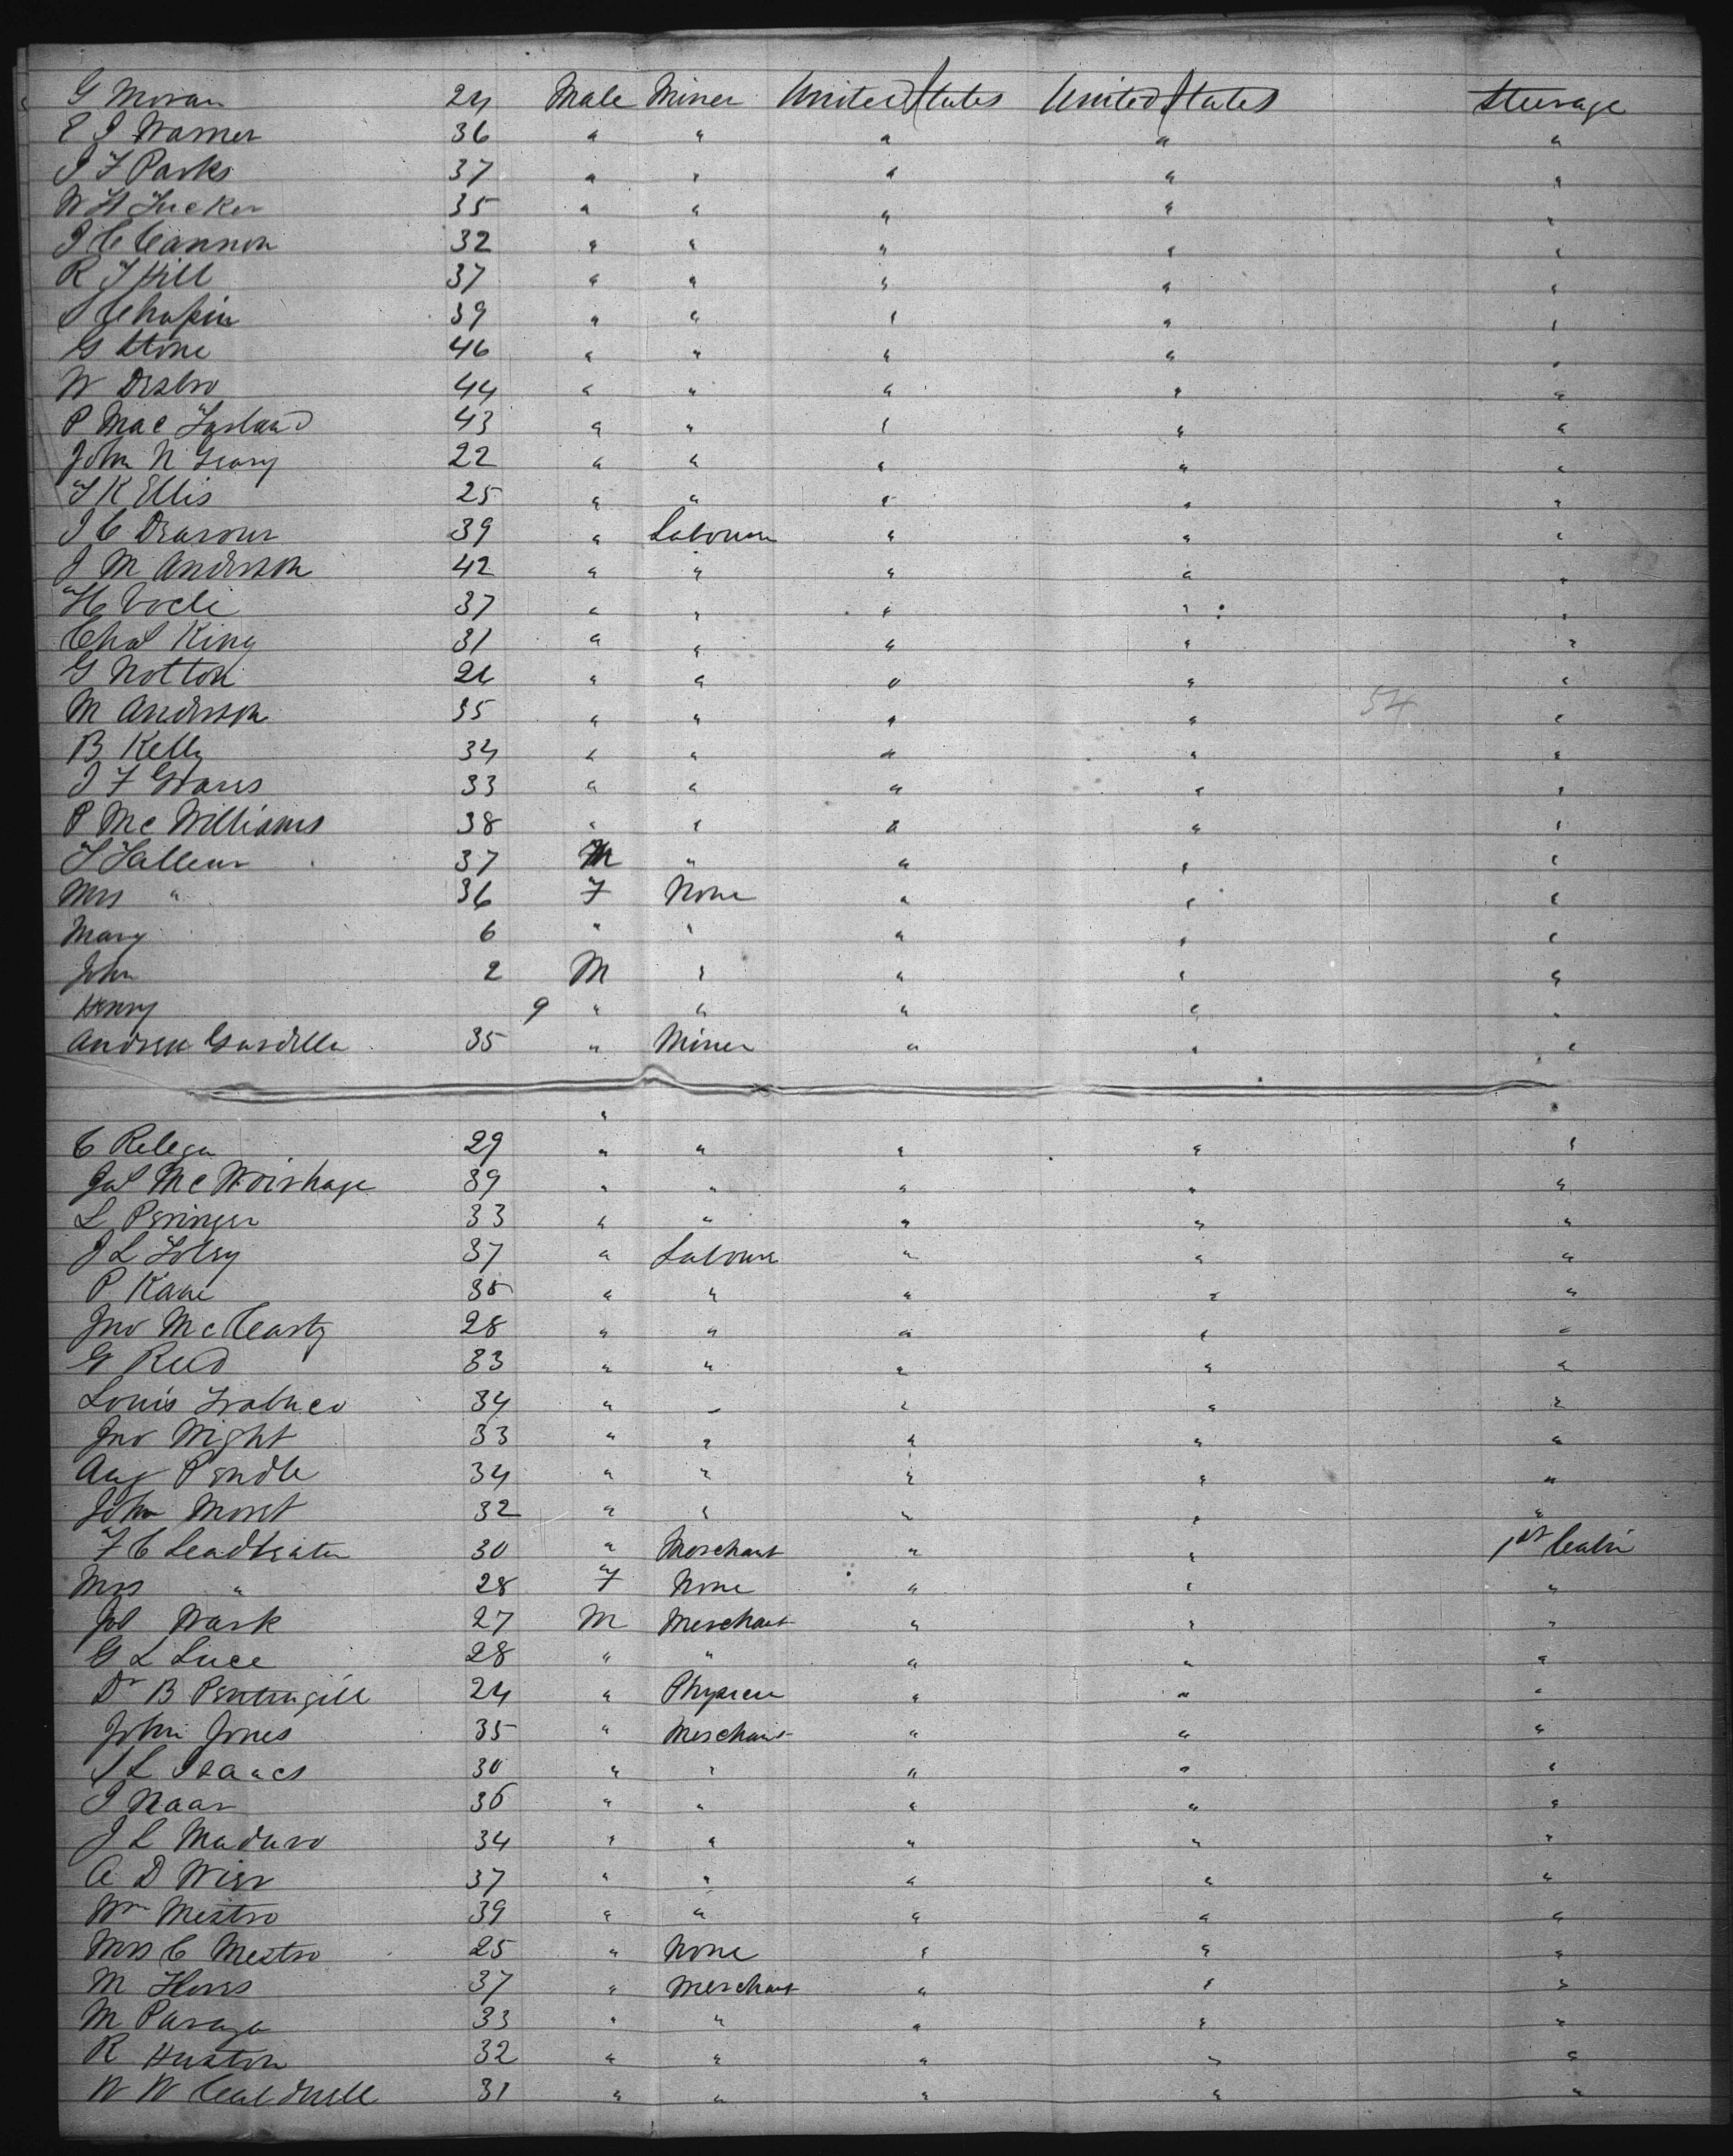 G Moran 24 Male Miner United States United States Steerage
E J Warner 36 " " " " "
J F Parks 37 " " " " "
W H Tucker 35 " " " " "
J C Cannon 32 " " " " "
R J Hill 37 " " " " "
S Chapin 39 " " " " "
G Stone 46 " " " " "
W Disbro 44 " " " " "
P Mac Farland 43 " " " " "
John N Geary 22 " " " " "
T K Ellis 25 " " " " "
J C 39 " Labourer " " "
J M Anderson 42 " " " " "
H 37 " " " " "
Chas King 31 " " " " "
G Notton " " " " "
M Anderson 35 " " " " " 54
B Kelly 34 " " " " "
J F 33 " " " " "
P Mc Williams 38 " " " " "
37 M " " " "
Mrs " 36 F None " " "
Mary 6 " " " " "
John 2 M " " " "
Henry 9 " " " " "
Andrew Gardella 35 " Miner " " "
"
C 29 " " " " "
Jas Mc 39 " " " " "
L Peringer 33 " " " " "
J L Foley 37 " Labourer " " "
P Kane 35 " " " " "
Jno McCarty 28 " " " " "
G Reed 33 " " " " "
Louis Trabuco 34 " " " " "
Jno Wight 33 " " " " "
Aug Pendle 34 " " " " "
John Moret 32 " " " " "
F C Leadbeater 30 " Merchant " " 1st Cabin
Mrs " 28 F None " " "
Job Wark 27 M Merchant " " "
G L Luce 28 " " " " "
Dr B 24 " Physician " " "
John Jones 35 " Merchant " " "
J L Isaacs 30 " " " " "
J Naar 36 " " " " "
J L Maduro 34 " " " " "
A D Wier 37 " " " " "
Wm Mestro 39 " " " " "
Mrs C Mestro 25 " None " " "
M 37 " Merchant " " "
M 33 " " " " "
R Huston 32 " " " " "
W W Caldwell 31 " " " " "